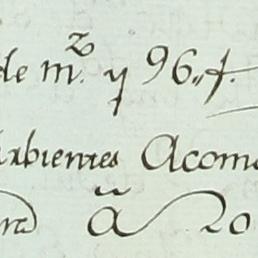 de mrz. y 96„f.
Arbienres Acom
ã 20